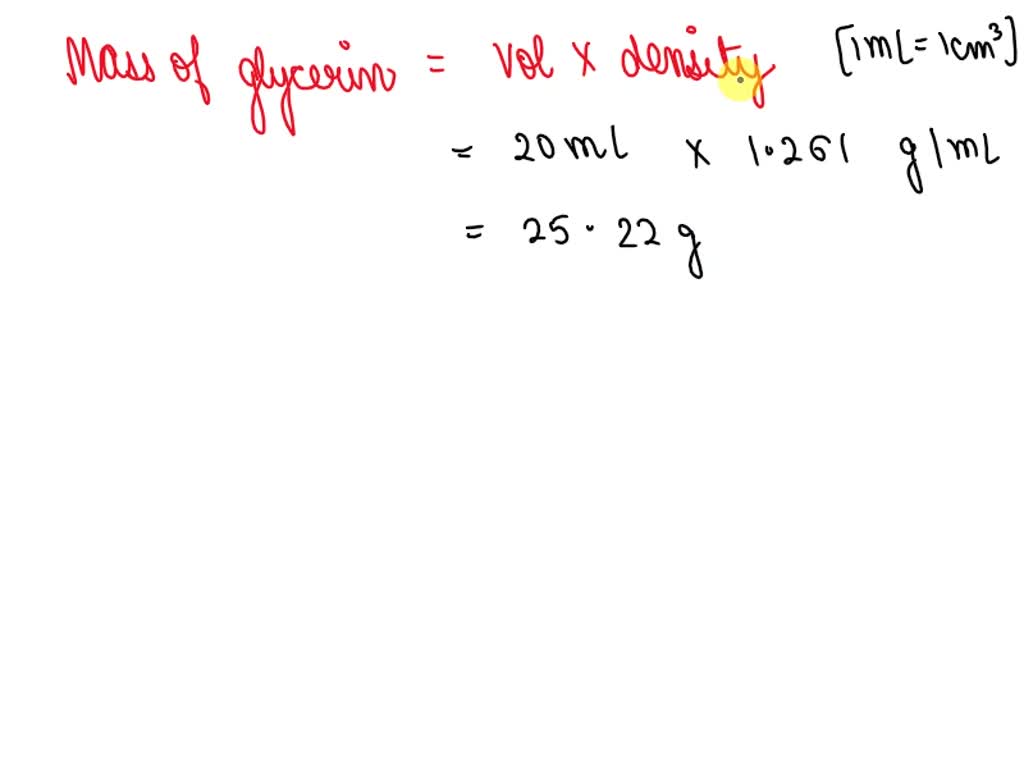 Mass of glycerin = vol x density [1mL = 1cm³]
= 20 ml x 1.261 g/mL
= 25.22 g